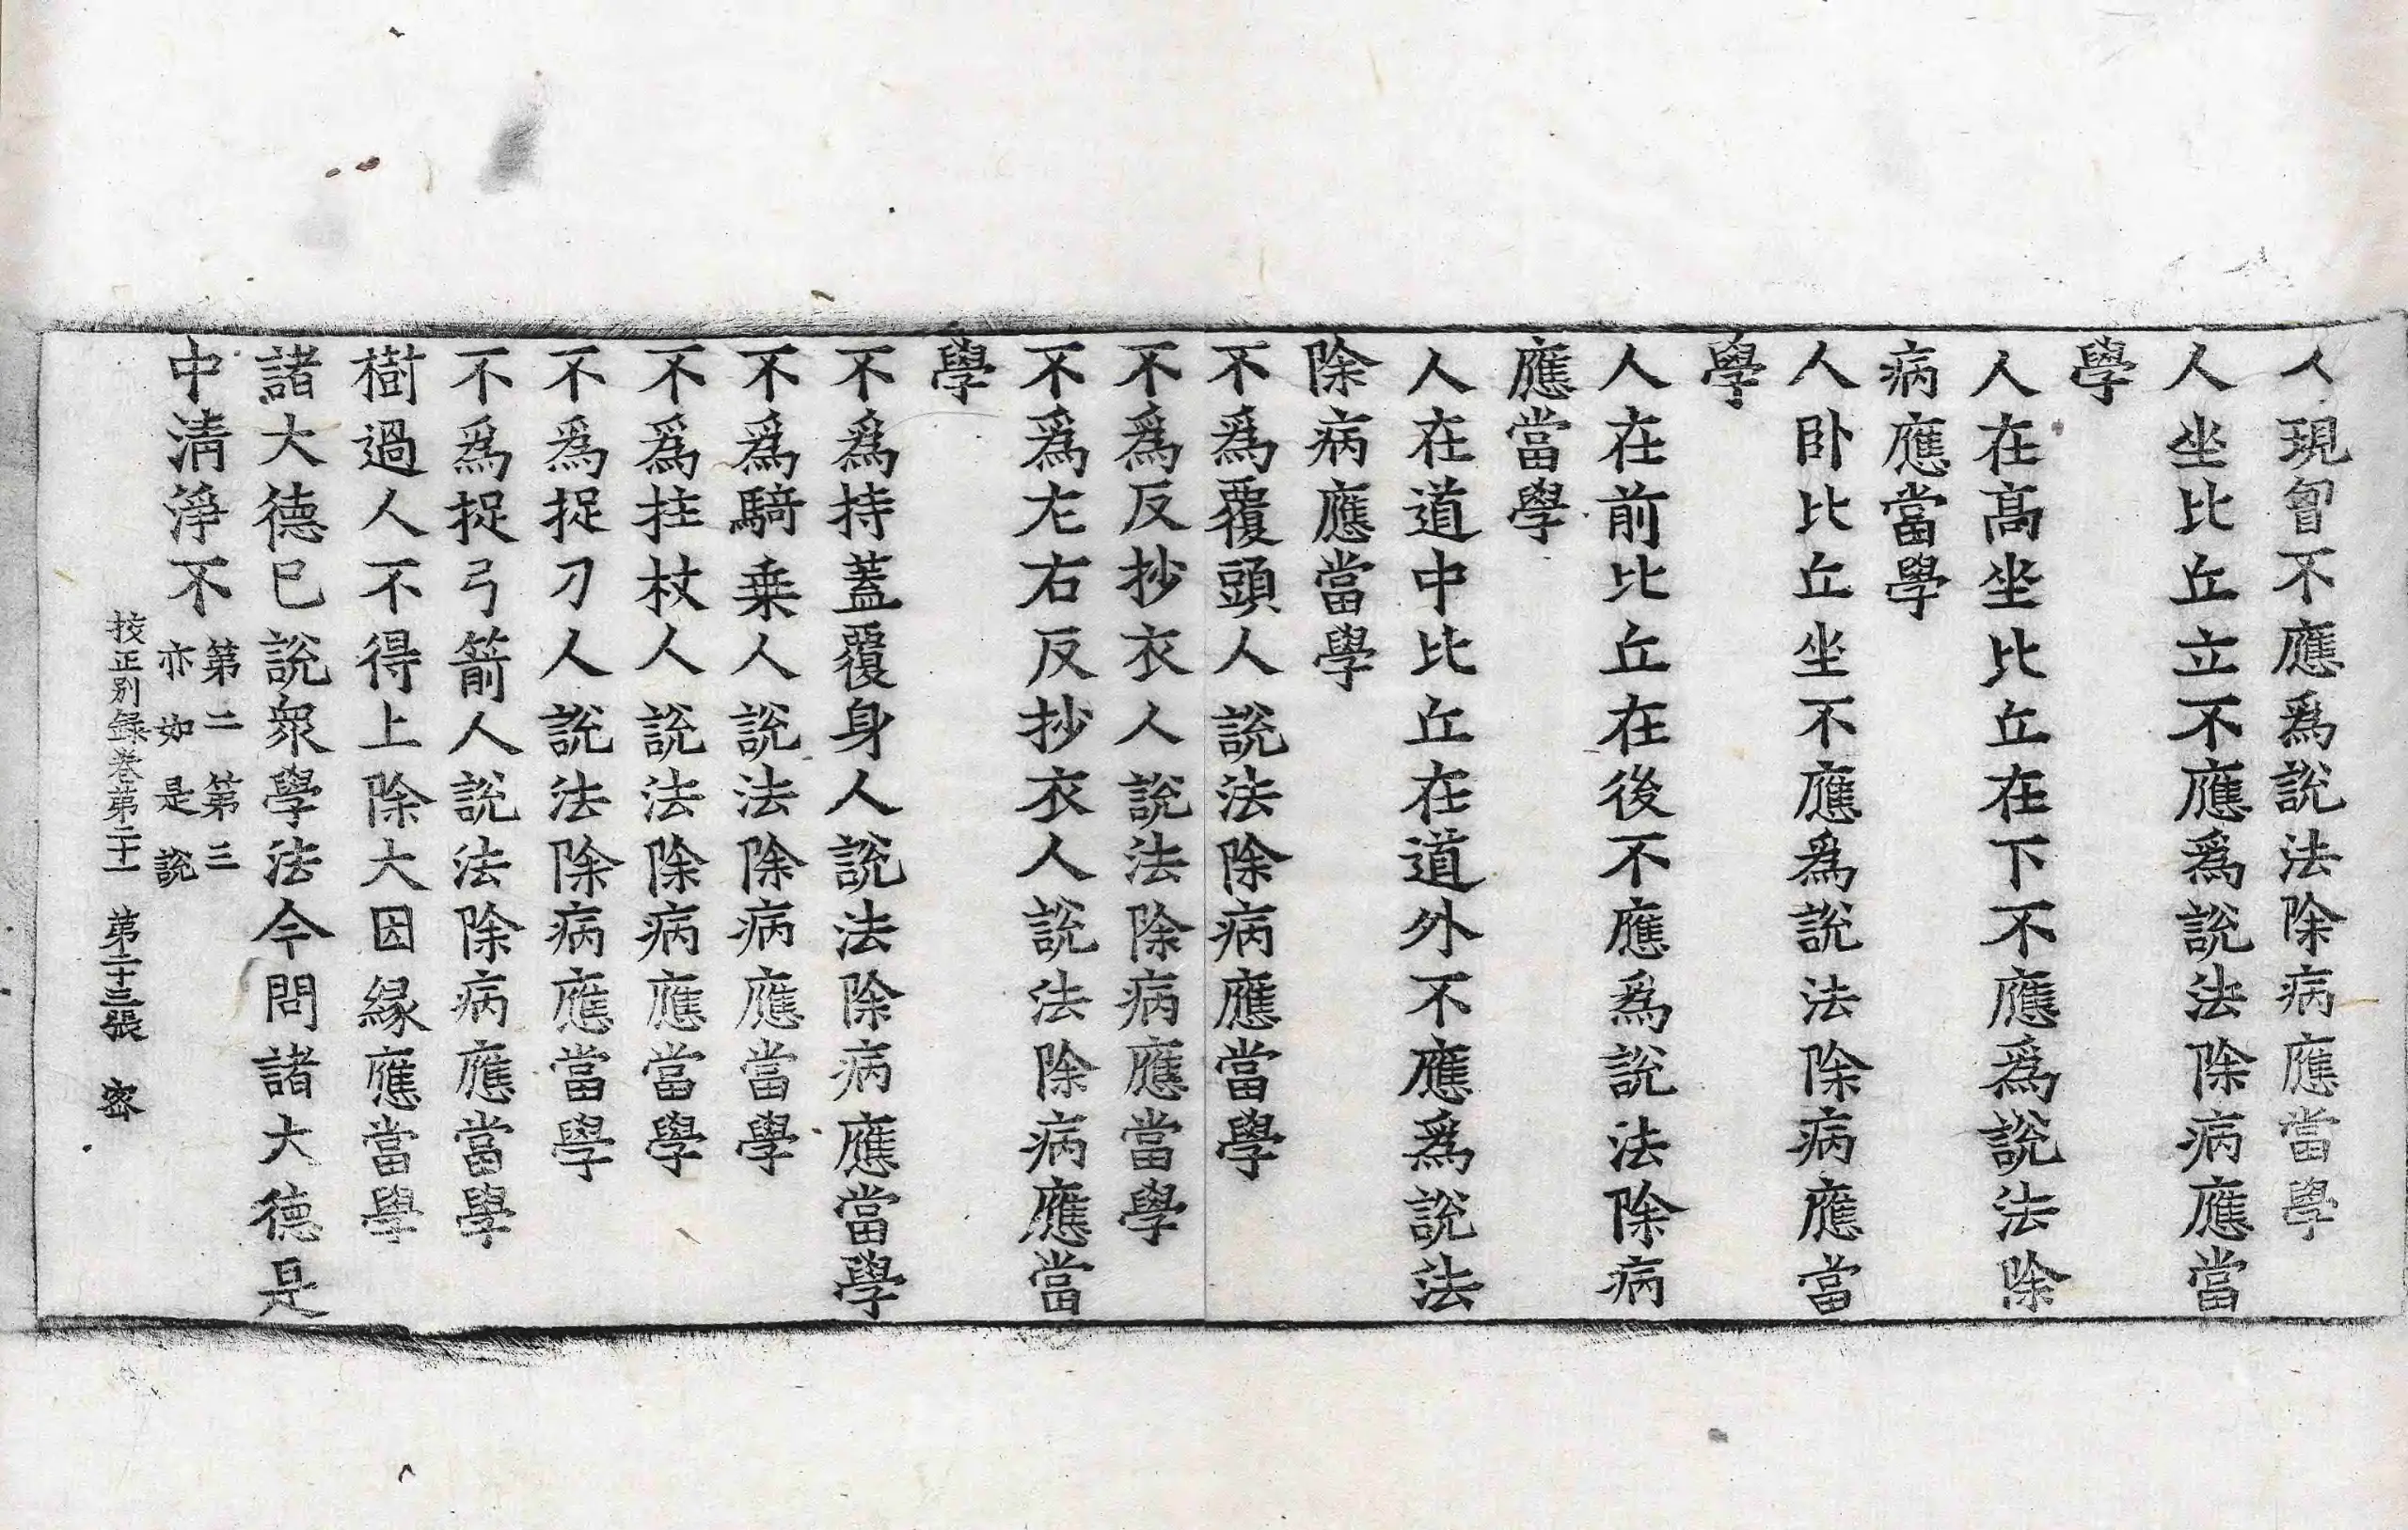 人現胷不應爲說法除病應當學
人坐比丘立不應爲說法除病應當
學
人在髙坐比丘在下不應爲說法除
病應當學
人卧比丘坐不應爲說法除病應當
學
人在前比丘在後不應爲說法除病
應當學
人在道中比丘在道外不應爲說法
除病應當學
不爲覆頭人說法除病應當學
不爲反抄衣人說法除病應當學
不爲左右反抄衣人說法除病應當
學
不爲持蓋覆身人說法除病應當學
不爲騎乗人說法除病應當學
不爲拄杖人說法除病應當學
不爲捉刀人說法除病應當學
不爲捉弓箭人說法除病應當學
樹過人不得上除大因緣應當學
諸大德已說衆學法今問諸大德是
中淸淨不第二第三
亦如是說
挍正別録卷第二十一 第二十三張 密